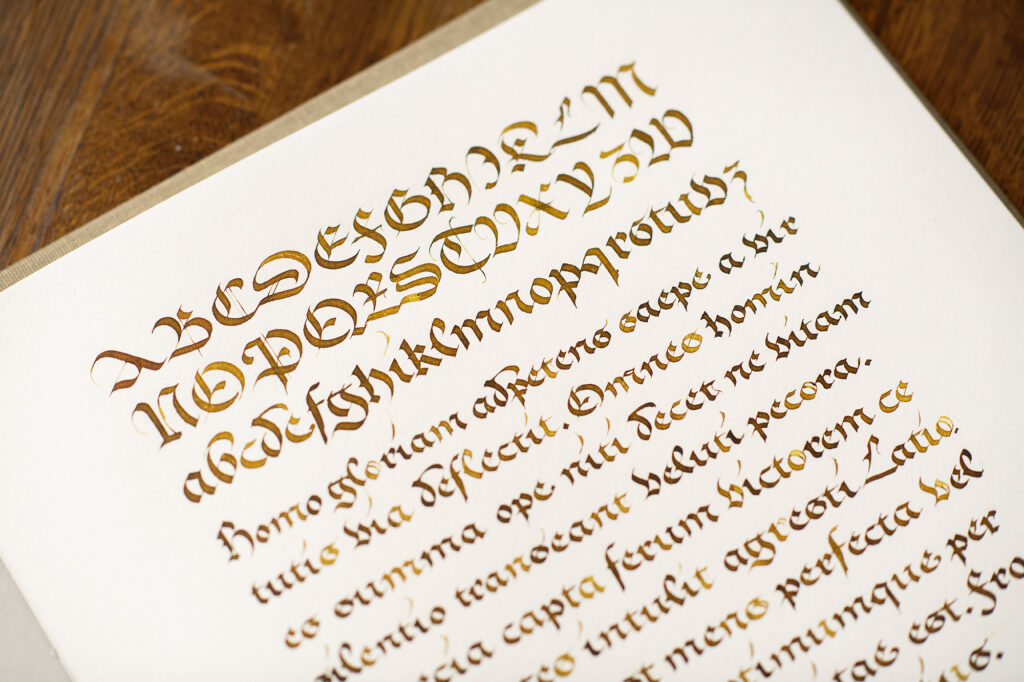 ABCDEFGHIKLM
NOPQRSTVXYZW
abcdefghiklmnopqrstuwz
Homo gloriam adpetens saepe a vir
tutis via deflectit. Omnes homin
es summa ope niti decet ne vitam
silentio transeant veluti pecora.
cia capta ferum victorem ce
intulit agresti Latio.
mens perfecta vel
timumque per
est. Fra